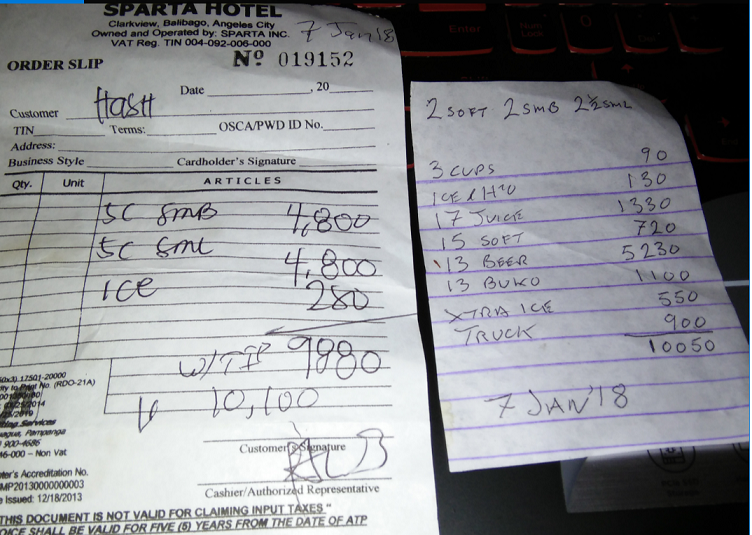 SPARTA HOTEL
Clarkview, Balibago, Angeles City
Owned and Operated by: SPARTA INC.
VAT Reg. TIN 004-092-006-000
7 Jan '18
ORDER SLIP
Nº 019152
Date , 20
Customer HASH
TIN Terms: OSCA/PWD ID No.
Address:
Business Style Cardholder's Signature
Qty. Unit ARTICLES
5C SMB 4,800
5C SML 4,800
ICE 280
W/TIP 9880
10,100
Customer's Signature
Cashier/Authorized Representative
17501-20000
to Print No. (RDO-21A)
Pampanga
900-4686
46-000 – Non Vat
Accreditation No.
MP20130000000003
Issued: 12/18/2013
THIS DOCUMENT IS NOT VALID FOR CLAIMING INPUT TAXES"
SHALL BE VALID FOR FIVE (5) YEARS FROM THE DATE OF ATP
2 SOFT 2 SMB 2½ SML
3 CUPS 90
ICE & H2O 130
17 JUICE 1330
15 SOFT 720
13 BEER 5230
13 BUKO 1100
XTRA ICE 550
TRUCK 900
10050
7 JAN '18
Enter
Num Lock